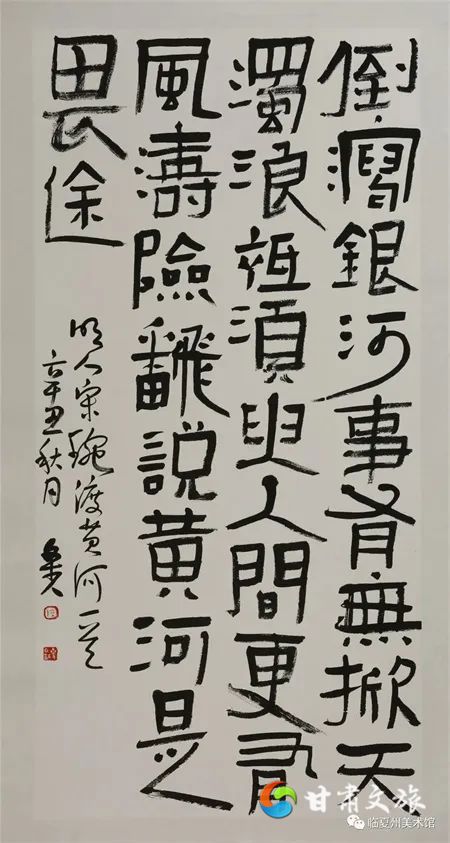 倒瀉銀河事有無掀天
濁浪祗須臾人間更有
風濤險飜說黃河是
畏途
明人宋琬渡黄河一首
辛丑秋月
甘肃文旅
临夏州美术馆